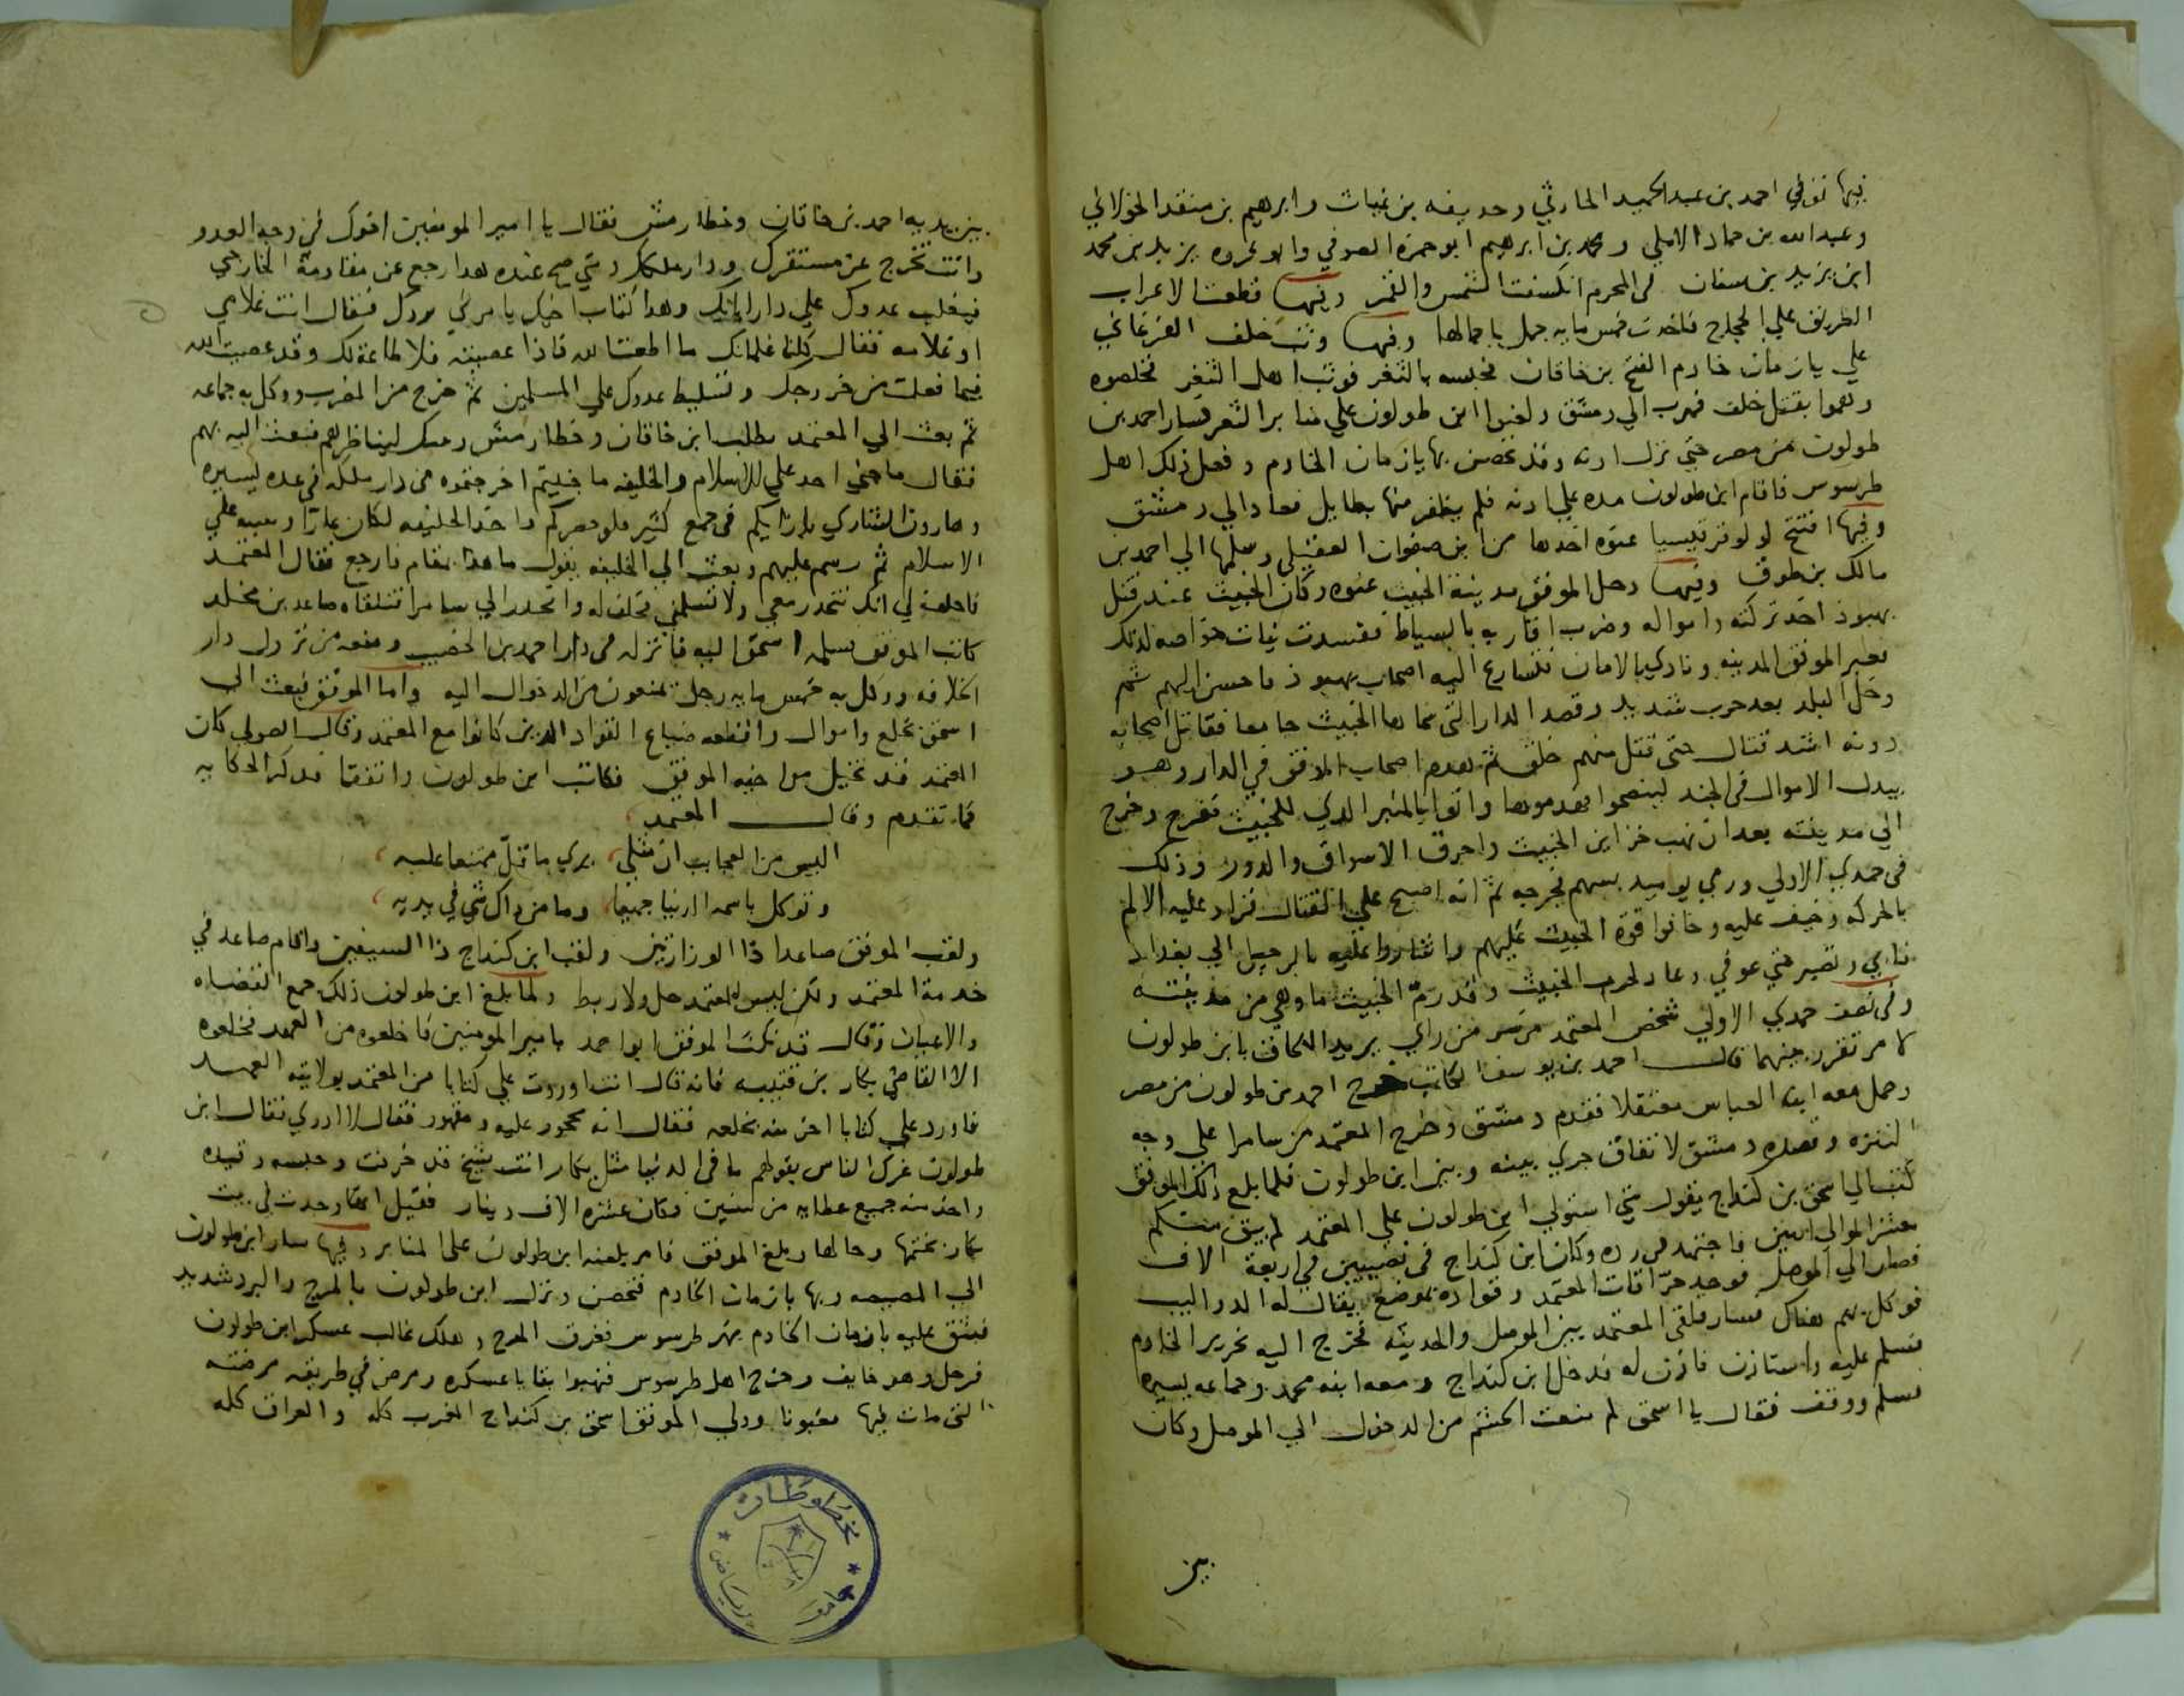 فيها توفي احمد بن عبدالحميد الحارثي وحديفه بن غياث وابرهيم بن منقد الخولاني
وعبدالله بن حماد الاملي ومحمد بن ابرهيم ابو حمزه الصوفي وابو فروه يزيد بن محمد
ابن يزيد بن سنان في المحرم انكسفت الشمس والقمر وفيها قطعت الاعراب
الطريق علي الحجاج فاخدت خمس مايه جمل باحمالها وفيها وثب خلف الفرغاني
علي يازمان خادم الفتح بن خاقان فحبسه بالثغر فوثب اهل الثغر فخلصوه
وهموا بقتل خلف فهرب الي دمشق ولعنوا ابن طولون علي منابر الثغر فسار احمد بن
طولون من مصر حتي نزل ادنه وقد تحصن بها يازمان الخادم وفعل ذلك اهل
طرسوس فاقام ابن طولون مده علي ادنه فلم يظفر منها بطايل فعاد الي دمشق
وفيها افتتح لولو قرقيسيا عنوه اخدها من ابن صفوان العقيلي وسلمها الي احمد بن
مالك بن طوق وفيها دخل الموفق مدينة الخبيث عنوه وكان الخبيث عند قتل
بهبود اخد تركته وامواله وضرب اقاربه بالسياط ففسدت نيات خواصه لدلك
فعبر الموفق المدينه ونادي بالامان فتسارع اليه اصحاب بهبود فاحسن اليهم ثم
دخل البلد بعد حرب شديد وقصد الدار التي سماها الخبيث جامعا فقاتل اصحابه
دونه اشد قتال حتي قتل منهم خلق ثم هدم اصحاب الموفق في الدار وهو
يبدل الاموال في الجند لينصحوا فهدموها واتوا بالمنبر الدي للخبيث ففرح وخرج
الي مدينته بعد ان نهب خزاين الخبيث واحرق الاسواق والدور وذلك
في جمدي الاولي ورمي يوميد بسهم فجرحه ثم انه اصبح علي القتال فزاد عليه الالم
بالحركه وخيف عليه وخافوا قوة الخبيث عليهم واشاروا عليه بالرحيل الي بغداد
فابي وتصبر حتي عوفي وعاد لحرب الخبيث وقد رم الخبيث ما وهي من مدينته
وفي نصف جمدي الاولي شخص المعتمد من سر من راي يريد اللحاق بابن طولون
لامر تقرر بينهما قال احمد بن يوسف الكاتب خرج احمد بن طولون من مصر
وحمل معه ابنه العباس معتقلا فقدم دمشق وخرج المعتمد من سامرا علي وجه
التنزه وقصده دمشق لاتفاق جري بينه وبين ابن طولون فلما بلغ ذلك الموفق
كتب الي اسحق بن كنداج يقول متي استولي ابن طولون علي المعتمد لم يبق منكم
معشر الموالي اثنين فاجتهد في رده وكان ابن كنداج في نصيبين في اربعة الاف
فصار الي الموصل فوجد حراقات المعتمد وقواده بموضع يقال له الدواليب
فوكل بهم هناك فسار فلقي المعتمد بين الموصل والحديثه فخرج اليه نحرير الخادم
فسلم عليه واستاذن فاذن له فدخل ابن كنداج ومعه ابنه محمد وجماعه يسيره
فسلم ووقف فقال يا اسحق لم منعت الحشم من الدخول الي الموصل وكان
بين
بين يديه احمد بن خاقان وخطارمش فقال يا امير المومنين اخوك في وجه العدو
وانت تخرج عن مستقرك ودار ملكك ومتي صح عنده هدا رجع عن مقاومة الخارجي
فيغلب عدوك علي دار ابايك وهدا كتاب اخيك يامرني بردك فقال انت غلامي
او غلامه فقال كلنا غلمانك ما اطعت الله فاذا عصيته فلا طاعة لك وقد عصيت الله
فيما فعلت من خروجك وتسليط عدوك علي المسلمين ثم خرج من المضرب ووكل به جماعه
ثم بعث الي المعتمد بطلب ابن خاقان وخطارمش ليناظرهم فبعث اليه بهم
فقال ما جني احد علي الاسلام والخليفه ما جنيتم اخرجتموه من دار ملكه في عده يسيره
وهارون الشاري بازايكم في جمع كثير فلو حضركم واخد الخليفه لكان عارا وسبه علي
الاسلام ثم رسم عليهم وبعث الي الخليفه يقول ما هدا بمقام فارجع فقال المعتمد
فاحلف لي انك تنحدر معي ولا تسلمني فحلف له وانحدر الي سامرا فتلقاه صاعد بن مخلد
كاتب الموفق فسلمه اسحق اليه فانزله في دار احمد بن الخصيب ومنعه من نزول دار
الخلافه ووكل به خمس مايه رجل يمنعون من الدخول اليه واما الموفق فبعث الي
اسحق بخلع واموال واقطعه ضياع القواد الدين كانوا مع المعتمد وقال الصولي كان
المعتمد قد تخيل من اخيه الموفق فكاتب ابن طولون واتفقا فدكر الحكايه
كما تقدم وقال المعتمد
اليس من العجايب ان مثلي يري ما قل ممتنعا عليه
وتوكل باسمه الدنيا جميعا وما من ذاك شي في يديه
ولقب الموفق صاعدا ذا الوزارتين ولقب ابن كنداج ذا السيفين واقام صاعد في
خدمة المعتمد ولكن ليس للمعتمد حل ولا ربط ولما بلغ ابن طولون ذلك جمع القضاه
والاعيان وقال قد نكث الموفق ابو احمد بامير المومنين فاخلعوه من العهد فخلعوه
الا القاضي بكار بن قتيبه فانه قال انت اوردت علي كتابا من المعتمد بولايته العهد
فاورد علي كتابا اخر منه بخلعه فقال انه محجور عليه ومقهور فقال لا ادري فقال ابن
طولون غرك الناس بقولهم ما في الدنيا مثل بكار انت شيخ قد خرفت وحبسه وقيده
واخد منه جميع عطاياه من سنين فكان عشره الاف دينار فقيل انها وجدت في بيت
بكار بختمها وحالها وبلغ الموفق فامر بلعنه ابن طولون علي المنابر وفيها سار ابن طولون
الي المصيصه وبها يازمان الخادم فتحصن ونزل ابن طولون بالمرج والبرد شديد
فشق عليه يازمان الخادم نهر طرسوس فغرق المرج وهلك غالب عسكر ابن طولون
فرحل وهو خايف وخرج اهل طرسوس فنهبوا بقايا عسكره ومرض في طريقه مرضته
التي مات فيها مغبونا وولي الموفق اسحق بن كنداج المغرب كله والعراق كله
مخطوطات
جامعة
الرياض